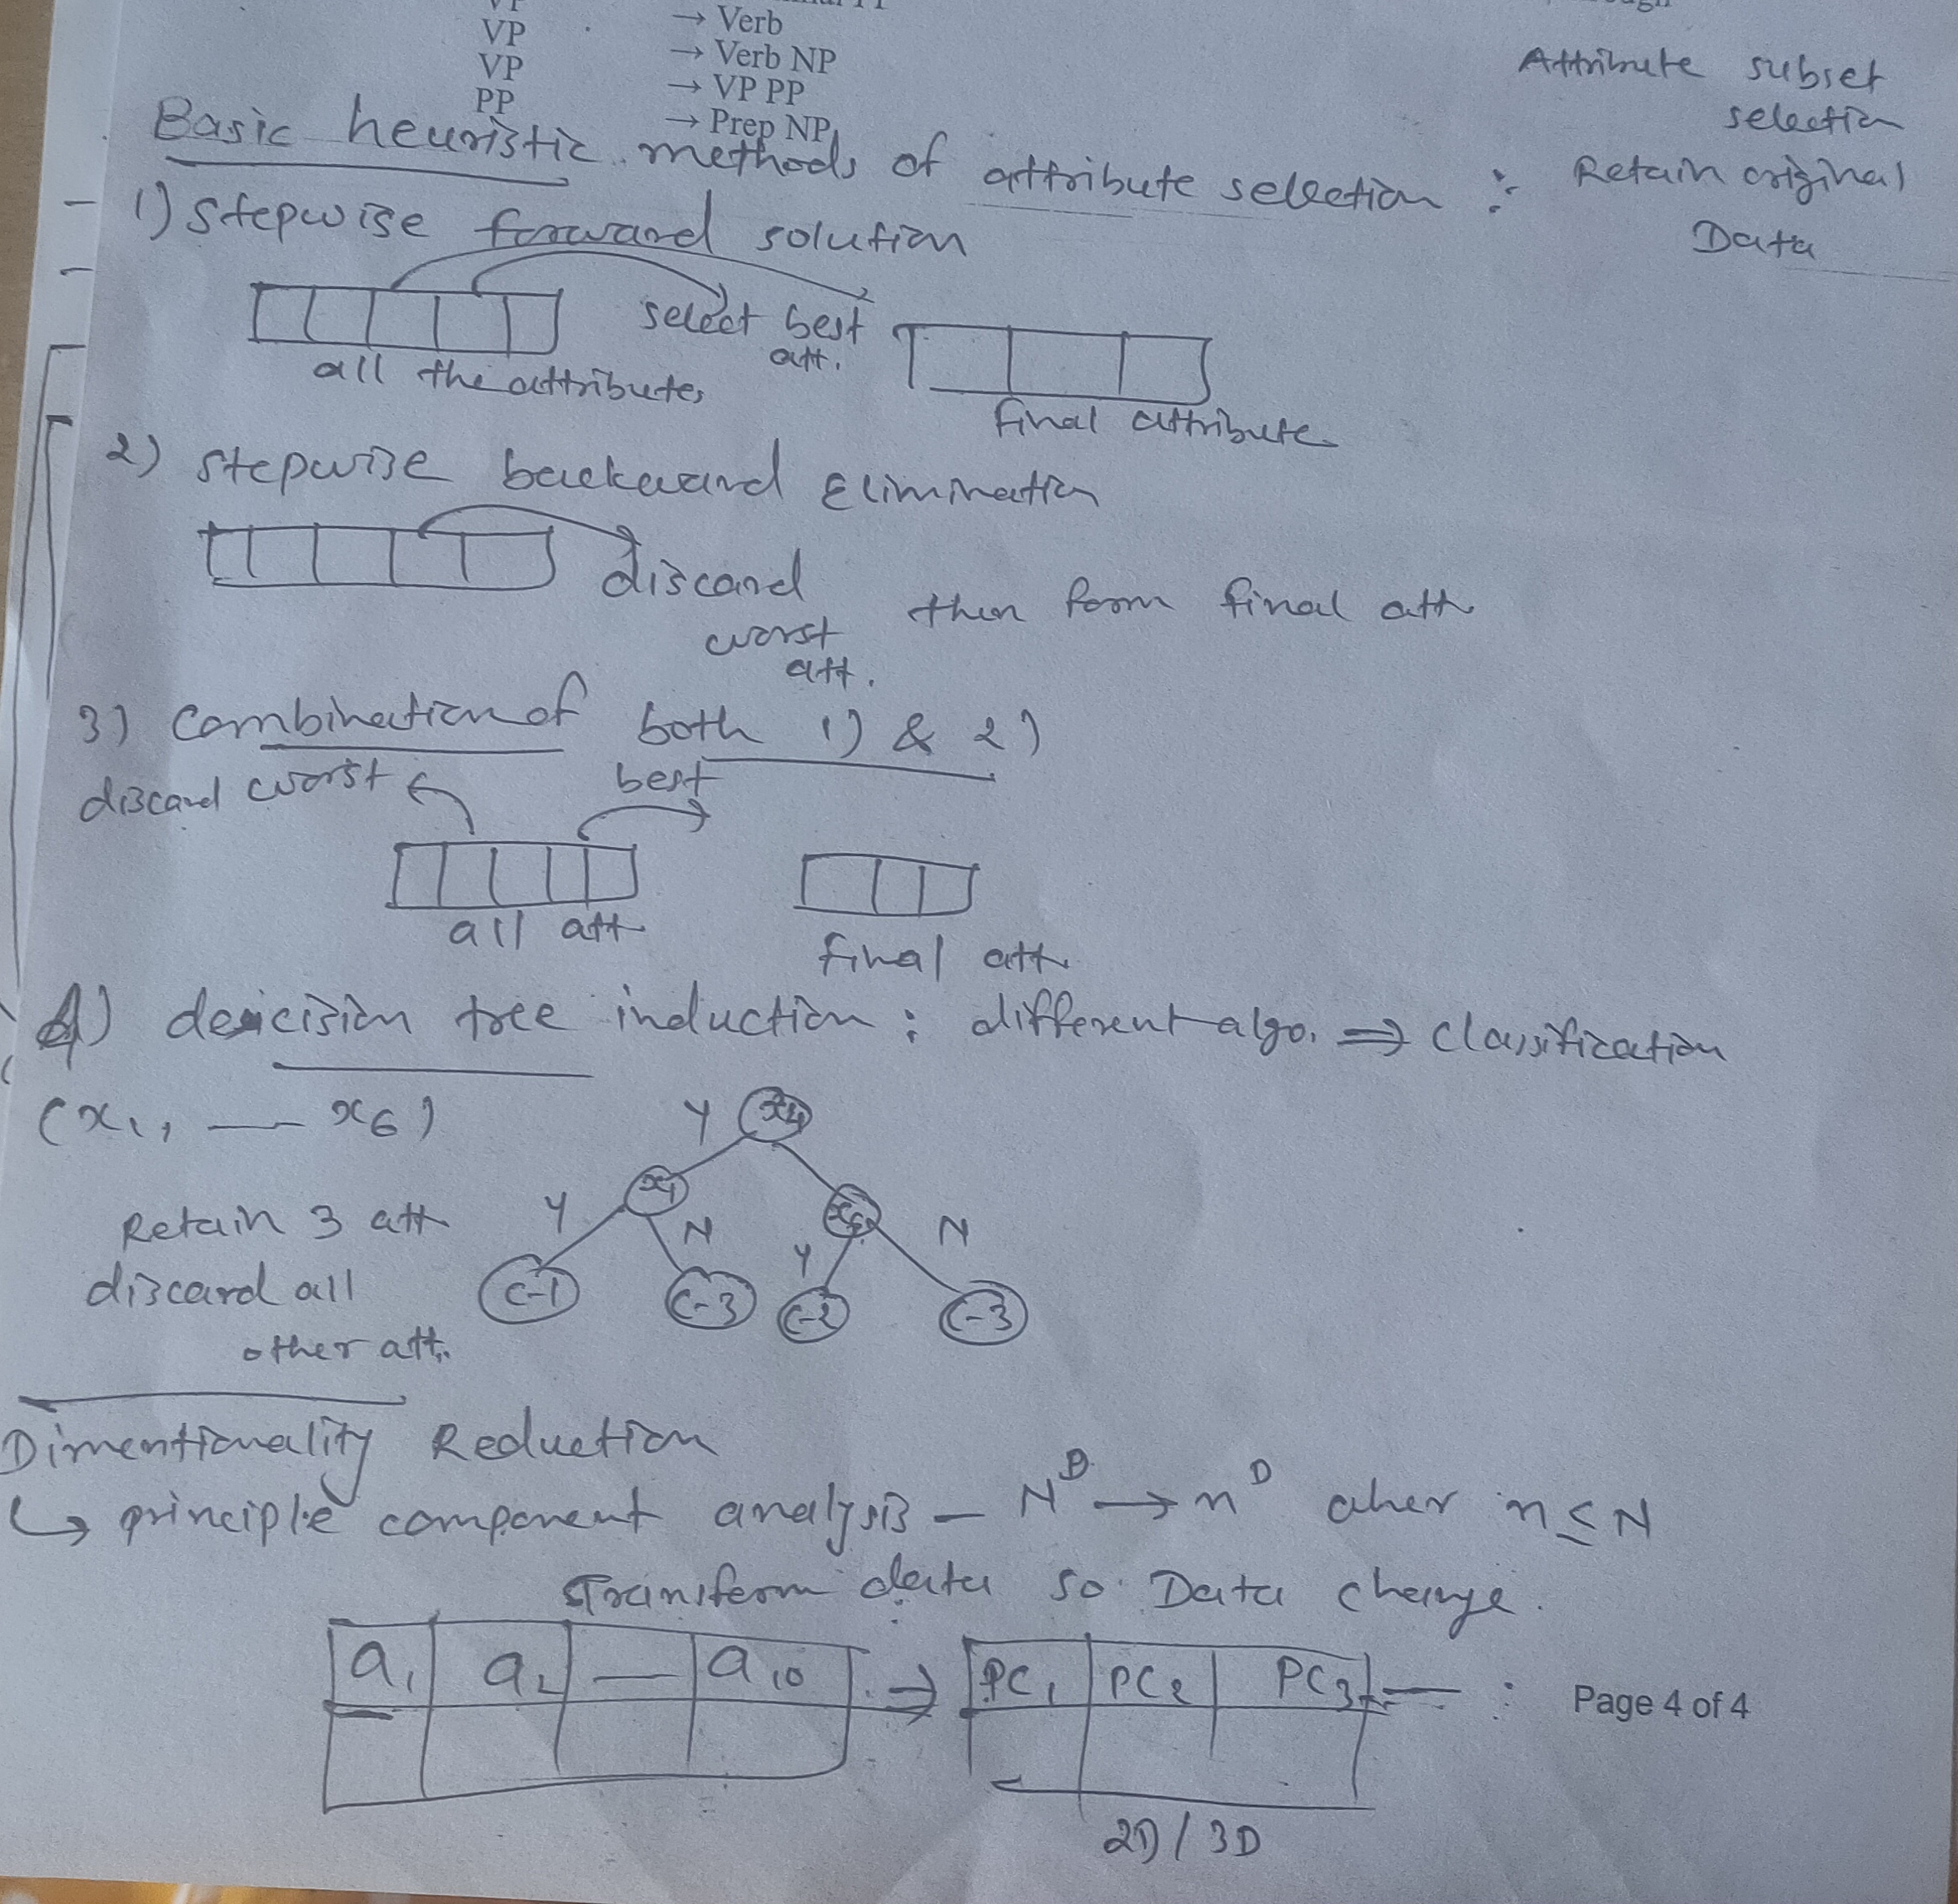 VP → Verb
VP → Verb NP
VP → VP PP
PP → Prep NP
Attribute subset
selection
Retain original
Data
Basic heuristic methods of attribute selection :
1) stepwise forward solution
select best
att.
all the attributes
final attribute
2) stepwise backward Elimination
discard
worst
att.
then form final att
3) combination of both 1) & 2)
discard worst
best
all att
final att
4) decision tree induction : different algo. ⇒ classification
(x1, — x6)
Y x4
x1 x6
Y N Y N
C-1 C-3 C-2 C-3
Retain 3 att
discard all
other att.
Dimentionality Reduction
↳ principle component analysis – N^D → n^D n ≤ N
Transform data so Data change.
a1 a2 — a10 ⇒ PC1 PC2 PC3 — :
2D / 3D
Page 4 of 4